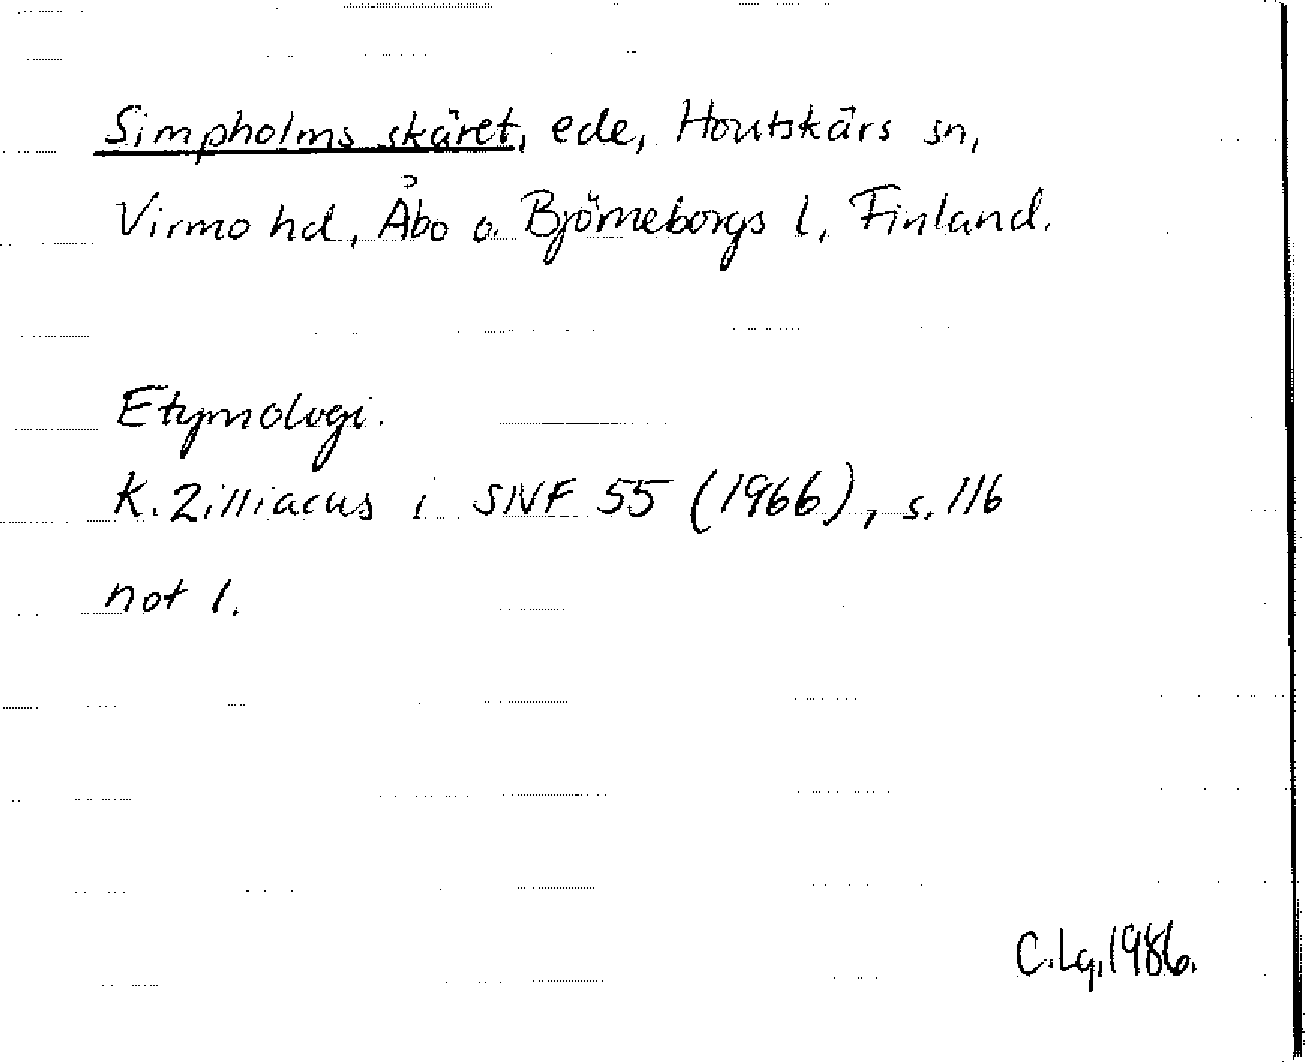 Simpholms skäret, ede, Houtskärs sn,
Virmo hd, Åbo o. Björneborgs l, Finland.
Etymologi.
K. Zilliacus i SNF 55 (1966), s. 116
not 1.
C.Lg. 1986.